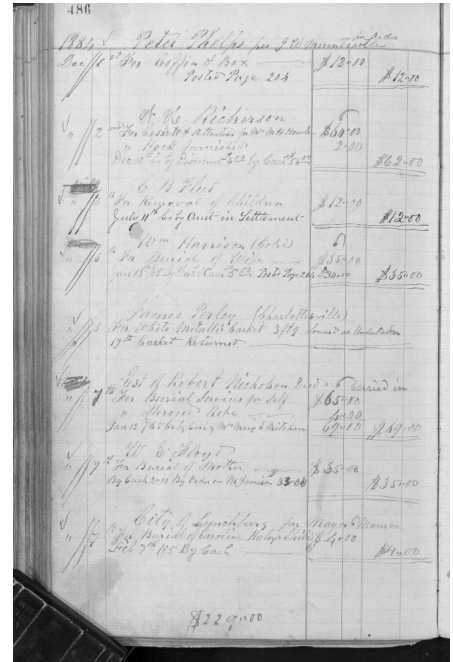 486
1884 Peter Phelps per J W Mountcastle
Dec 1st For Coffin & Box $12.00
Posted Page 204 $12.00
Richerson
2nd For Casket & Attention for Mrs $60.00
" Hack furnished 2.00
Dec by Discount by Cash $62.00
C B Fleet
For Removal of Children $12.00
July 11th By Amt in Settlement $12.00
Wm Harrison (Cold)
5 For Burial of Wife $35.00
Jan 15/85 By Cash 5.00 Posted Page 204 30.00 $35.00
James Perley (Charlottesville)
5 For White Metallic Casket 3 ft 9 loaned as Undertaker
17th Casket Returned
Est of Robert Nicholson Decd Carried in
7th For Burial Services for Self $65.00
" Shroud Robe 4.00
Jan 13/85 by Cash of Mrs Mary 69.00 $69.00
W E Floyd
7 For Burial of Mother $35.00
By Cash 2.00 By Order on Jamison 33.00 $35.00
City of Lynchburg per Mayor Manson
7 For Burial of Caroline Child $4.00
Feb 7th /85 By Cash $4.00
$229.00